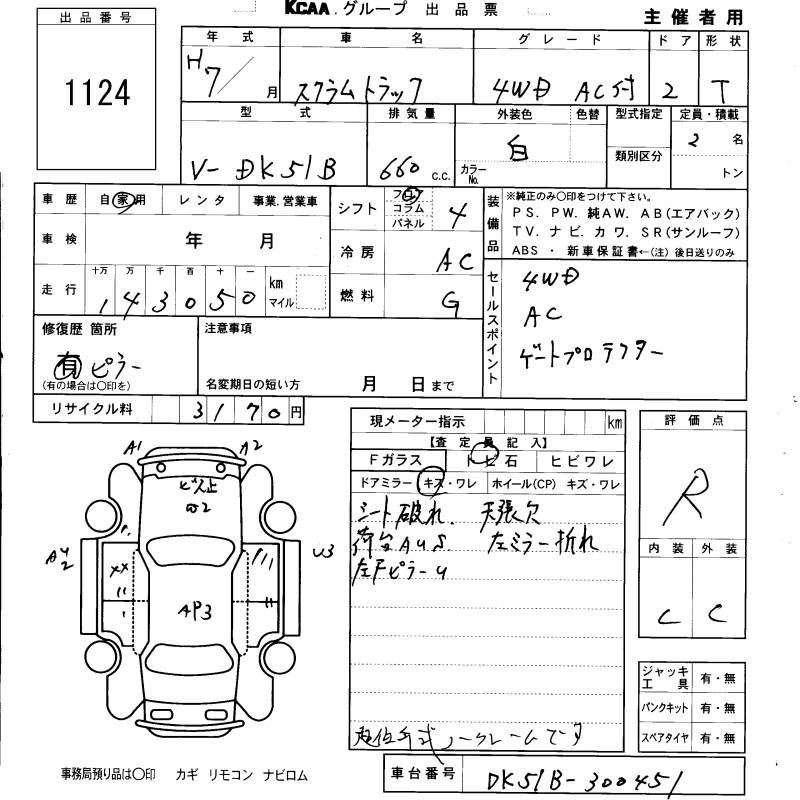 KCAA.グループ 出品票
主催者用
出品番号
1124
年式 車名 グレード ドア 形状
H7/月 スクラムトラック 4WD AC付 2 T
型式 排気量 外装色 色替 型式指定 定員・積載
V-DK51B 660 c.c. 白 カラーNo. 類別区分 2名 トン
車歴 自家用 レンタ 事業.営業車
車検 年 月
走行 十万 万 千 百 十 一 km マイル
1 4 3 0 5 0
シフト フロア コラム パネル 4
冷房 AC
燃料 G
装備品
※純正のみ〇印をつけて下さい。
PS. PW. 純AW. AB(エアバック)
TV. ナビ. カワ. SR(サンルーフ)
ABS ・ 新車保証書←(注) 後日送りのみ
セールスポイント
4WD
AC
ゲートプロテクター
修復歴 箇所
有 ピラー
(有の場合は〇印を)
注意事項
名変期日の短い方 月 日まで
リサイクル料 3170円
現メーター指示 km
【査定員記入】
Fガラス トビ石 ヒビワレ
ドアミラー キズ・ワレ ホイール(CP) キズ・ワレ
シート破れ. 天張欠
荷台AUS. 左ミラー折れ
左FピラーU
ノークレームです
評価点
R
内装 外装
C C
A1 A2
ビス止
W2
AU2
U3
AP3
ジャッキ工具 有・無
パンクキット 有・無
スペアタイヤ 有・無
事務局預り品は〇印 カギ リモコン ナビロム
車台番号 DK51B-300451